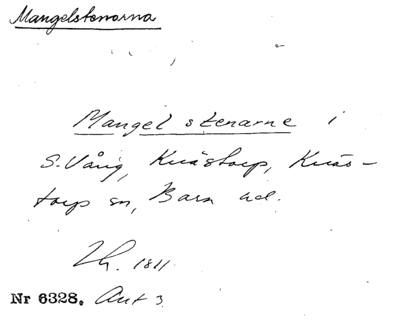 Mangelstenarna
Mangel stenarne i
S. Vång, Knästorp, Knäs-
torp sn, Bara hd.
Lh. 1811
Nr 6328. Ant 3